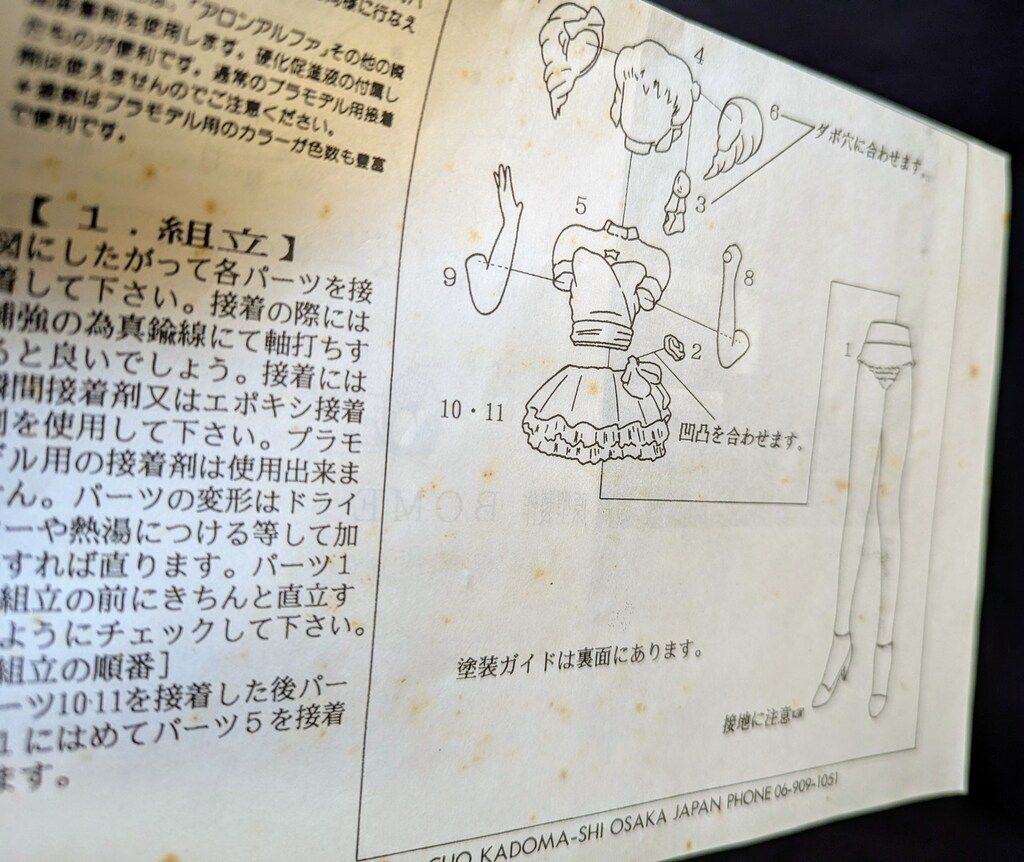 「アロンアルファ」その他の瞬
着剤を使用します。硬化促進液の付属し
ものが便利です。通常のプラモデル用接着
剤は使えませんのでご注意ください。
はプラモデル用のカラーが色数も豊富
で便利です。
【1．組立】
図にしたがって各パーツを接
着して下さい。接着の際には
補強の為真鍮線にて軸打ちす
ると良いでしょう。接着には
瞬間接着剤又はエポキシ接着
剤を使用して下さい。プラモ
デル用の接着剤は使用出来ま
せん。パーツの変形はドライ
ーや熱湯につける等して加
すれば直ります。パーツ1
組立の前にきちんと直立す
ようにチェックして下さい。
組立の順番］
ーツ10・11を接着した後パー
1にはめてパーツ5を接着
ます。
4
6
ダボ穴に合わせます。
3
5
9
8
2
1
10・11
凹凸を合わせます。
BOME
塗装ガイドは裏面にあります。
接地に注意
CHO KADOMA-SHI OSAKA JAPAN PHONE 06-909-1051